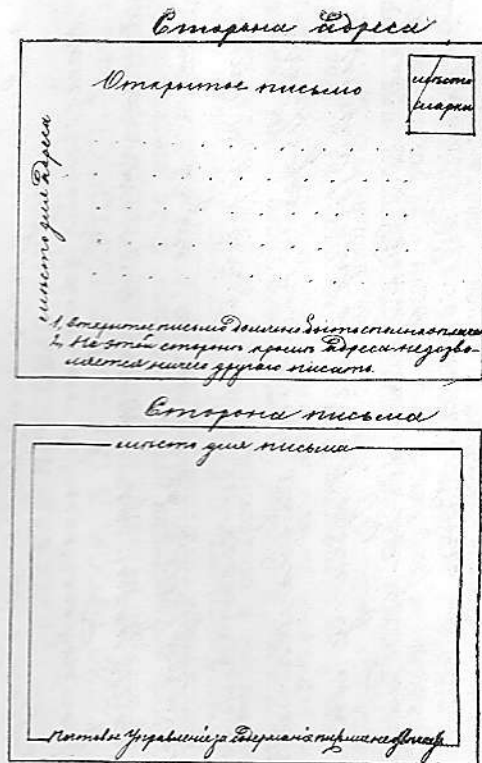 Сторона адреса
Открытое письмо
мѣсто
марки
мѣсто для адреса
1, Открытое письмо должно быть сполна оплачено
2, На этой сторонѣ кромѣ адреса не дозво-
ляется ничего другого писать.
Сторона письма
мѣсто для письма
Почтовое Управленіе за содержаніе письма не отвѣчаетъ